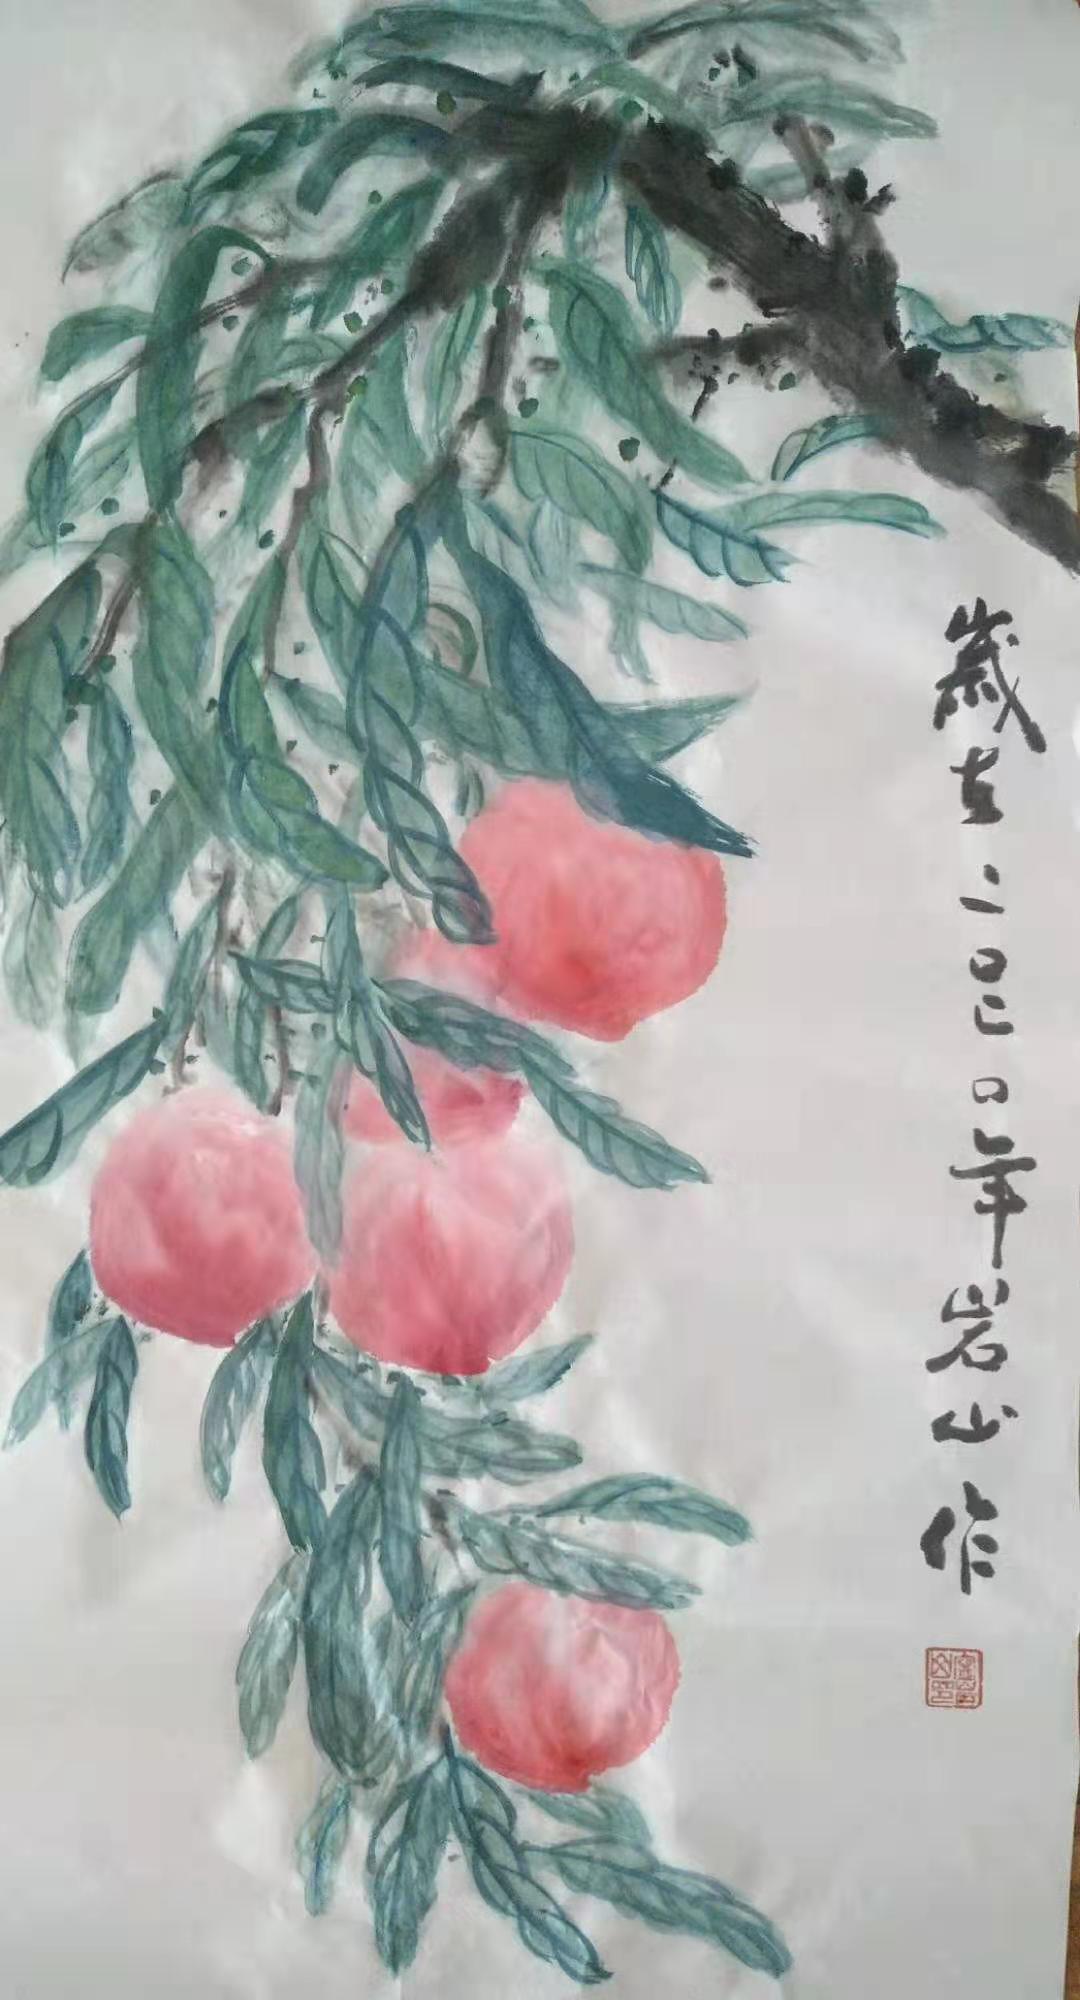 岁在二〇二〇年岩山作